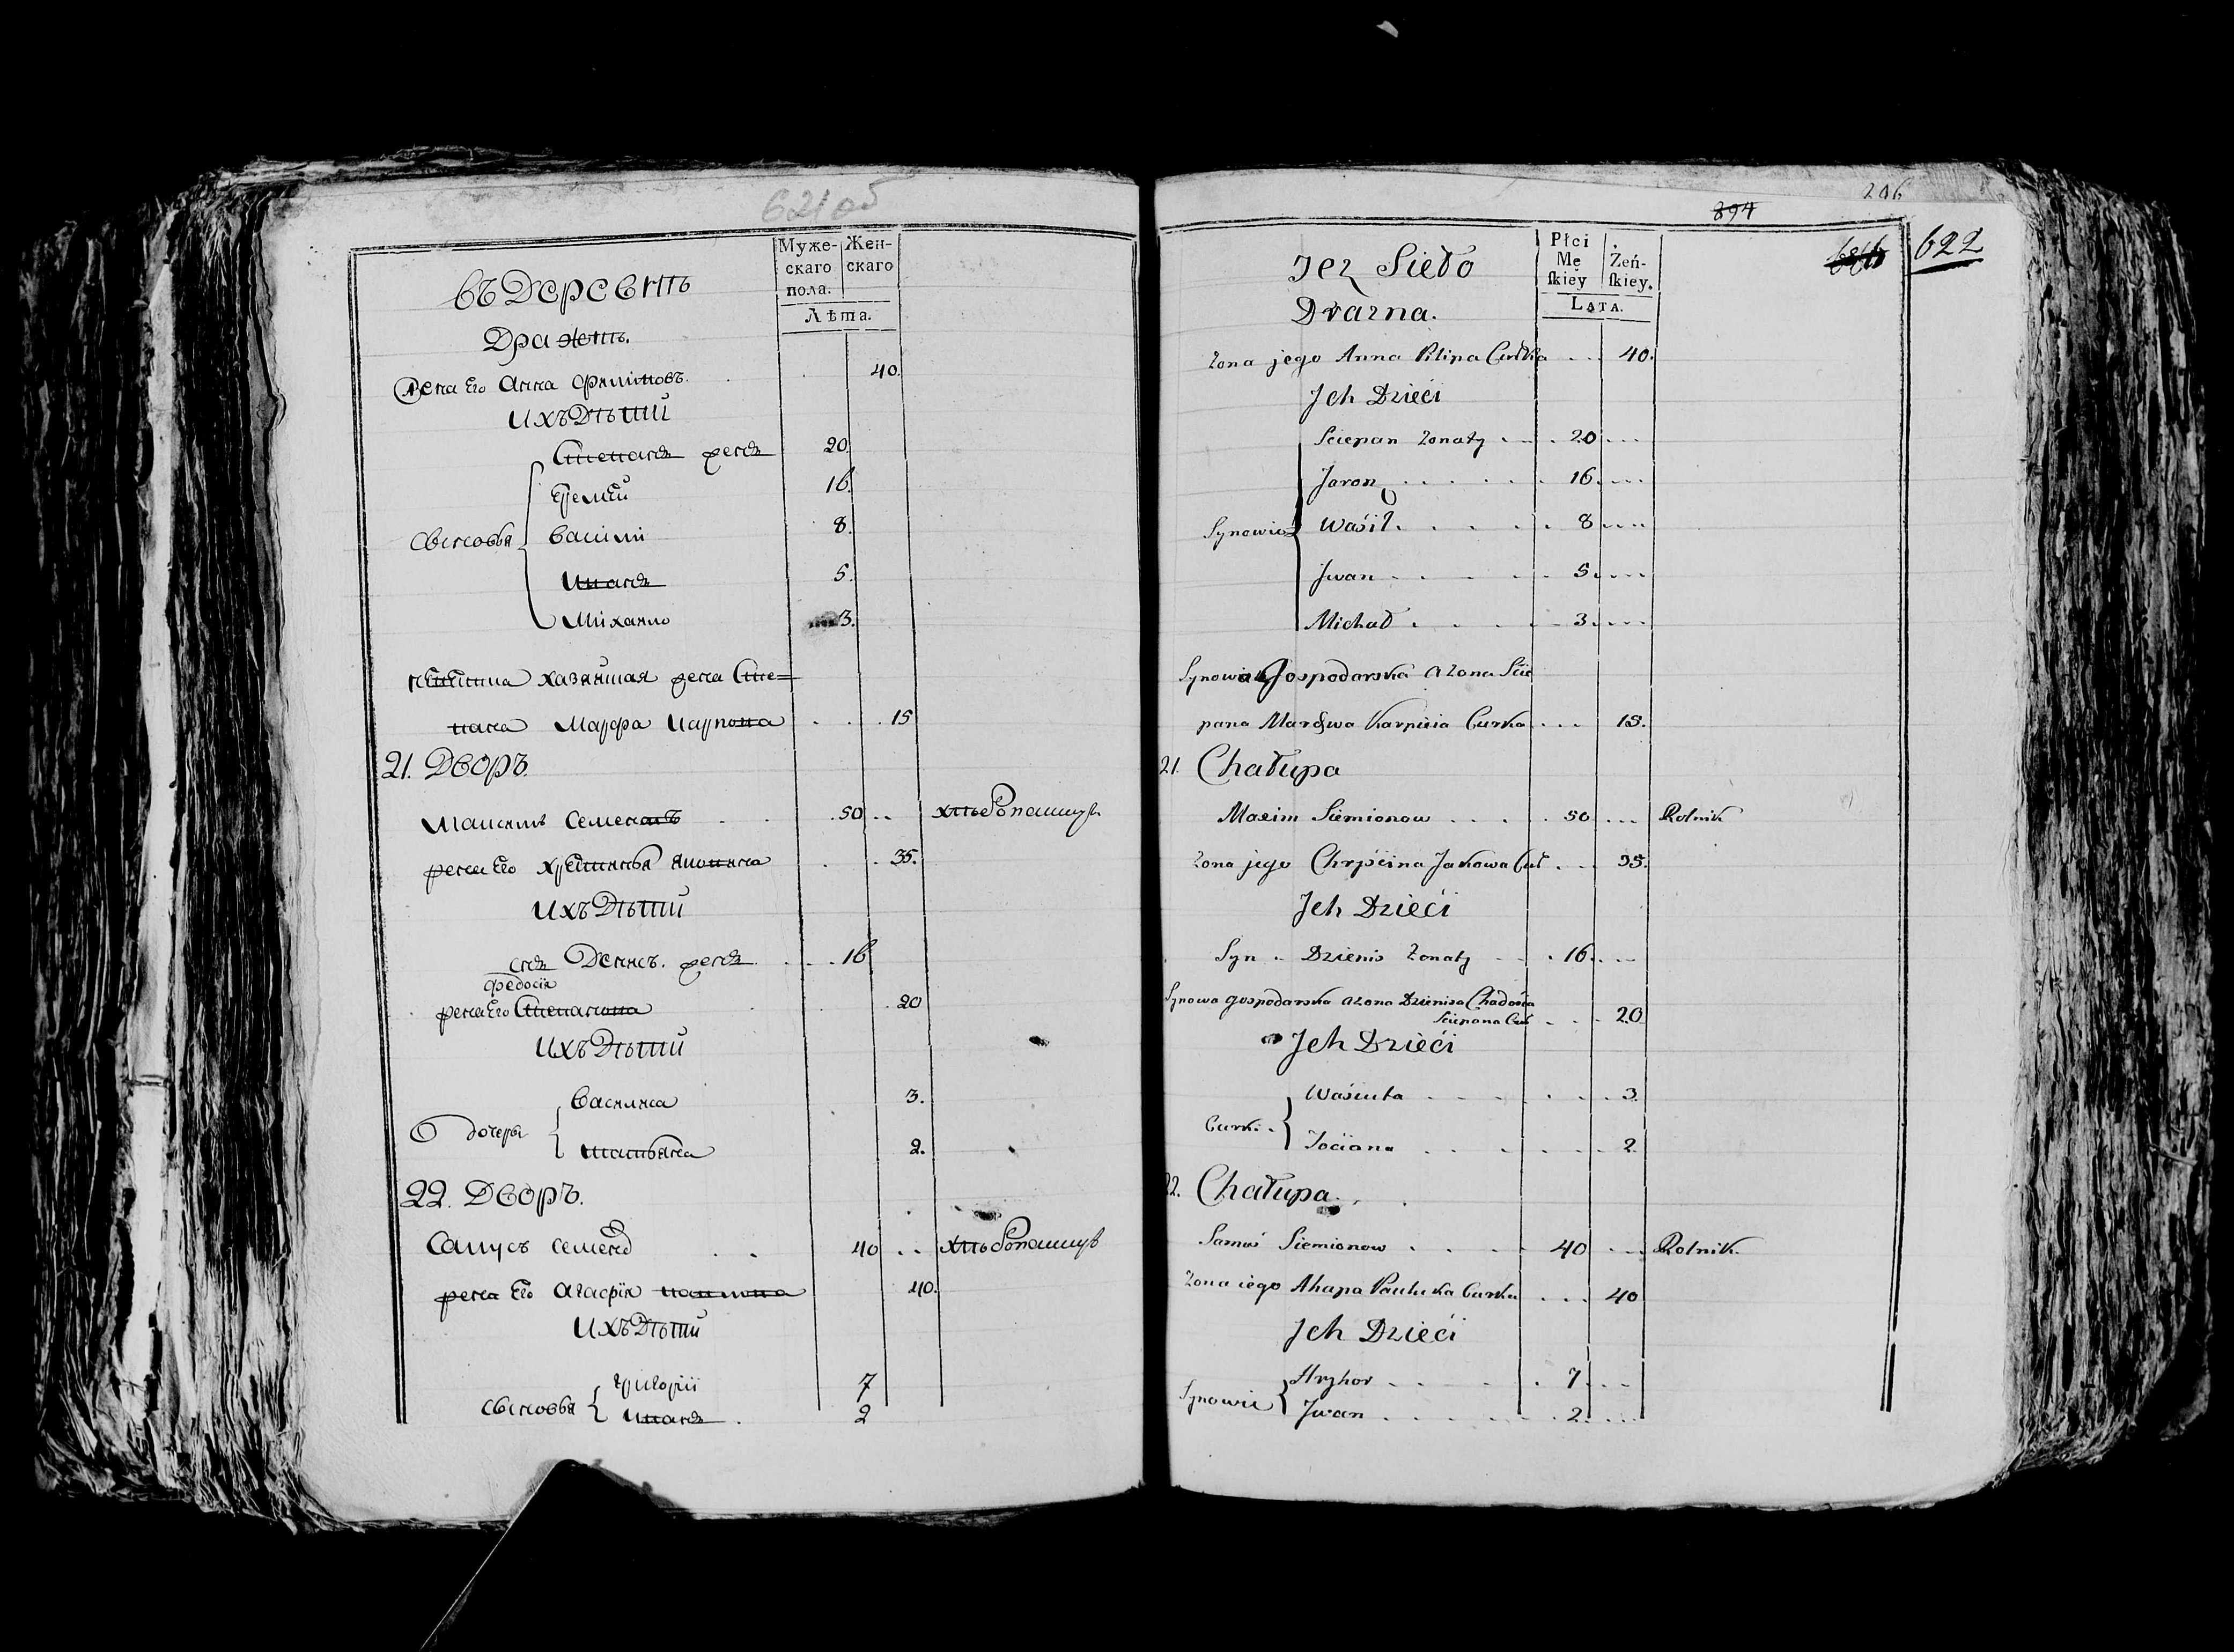 621об
Муже-
скаго
пола.
Жен-
скаго
Лѣта.
Въ Деревнѣ
Дражнѣ.
жена Его Анна Филипова 40.
Ихъ Дѣти
Степанъ женатъ 20.
Еремѣй 16.
Сыновья Василій 8.
Иванъ 5.
Михайло 3.
невѣстка хазяйская жена Сте=
пана Марфа Карпова 15
21. Дворъ.
Максимъ Семеновъ 50 хлѣбопашецъ
жена Его Христинья Яковлева 35.
Ихъ Дѣти
сынъ Денисъ. женатъ 16
Федосія
жена Его Степанова 20
Ихъ Дѣти
дочери Василиса 3.
Татьяна 2.
22. Дворъ.
Самусъ Семеновъ 40 хлѣбопашецъ
жена Его Агафія 40.
Ихъ Дѣти
Сыновья Григорій 7
Иванъ 2
206
894
622
Płci
Mę
ſkiey
Żeń-
ſkiey.
Lata.
Jez Sieło
Drazna.
Zona jego Anna Pilipa Curka 40.
Jch Dzieći
Sciepan Zonaty 20
Jaron 16
Synowie Waśil 8
Jwan 5
Michał 3
Synowa Gospodarska a Zona Scie
pana Marfwa Karpieia Curka 15.
21. Chałupa
Maxim Siemionow 50 Rolnik
Zona jego Chryścina Jakowa Cur 35.
Jch Dzieći
Syn Dzienis Zonaty 16
Synowa gospodarska a Zona Dzienisa Chadosia
Sciepana Cur 20
Jch Dzieći
Curki Waśiuta 3
Tociana 2
22. Chałupa
Samuś Siemionow 40 Rolnik
Zona iego Ahapa Pauluka Curka 40
Jch Dzieći
Synowie Hryhor 7
Jwan 2